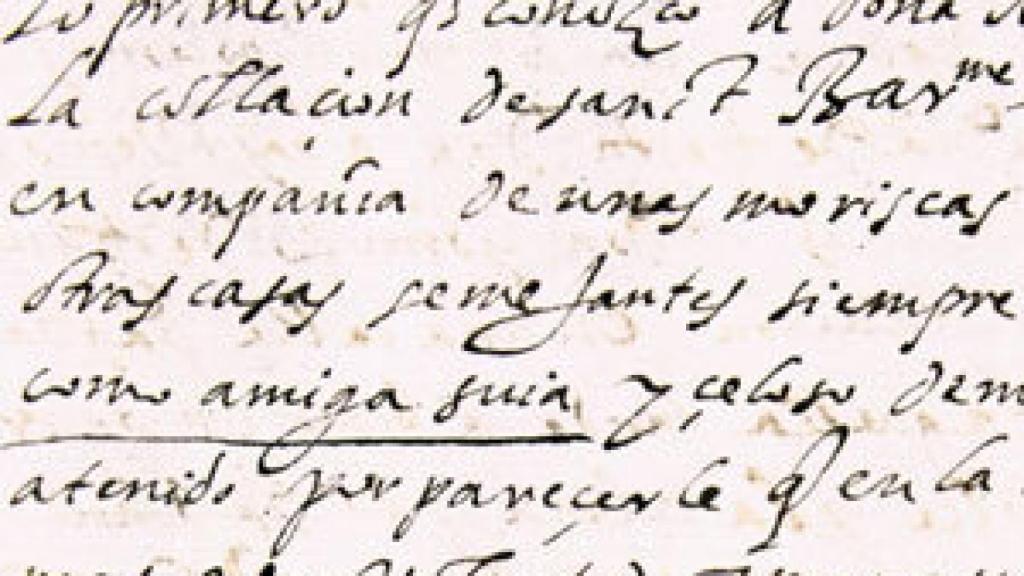 Lo primero q̃ conozco a doña
la collacion de sanct Barme
en compañia de unas moriscas
otras casas semejantes siempre
como amiga suia y çeloso dem
atenido por pareçerle q̃ en la